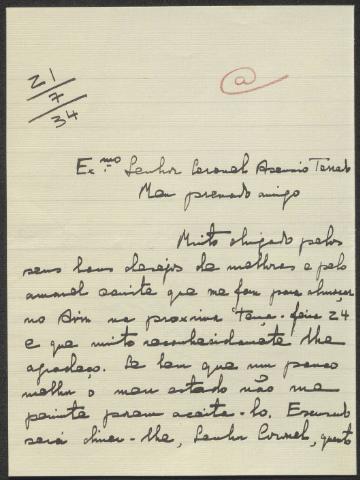 21
7
34
@
Ex.mo Senhor Coronel Asensio Terrado
Meu presado amigo
Muito obrigado pelos
seus bons desejos de melhoras e pelo
amavel convite que me faz para almoçar
no Avis na proxima Terça-feira 24
e que muito reconhecidamente lhe
agradeço. Se bem que um pouco
melhor o meu estado não me
permite porem aceita-lo. Escusado
será dizer-lhe, Senhor Coronel, quanto